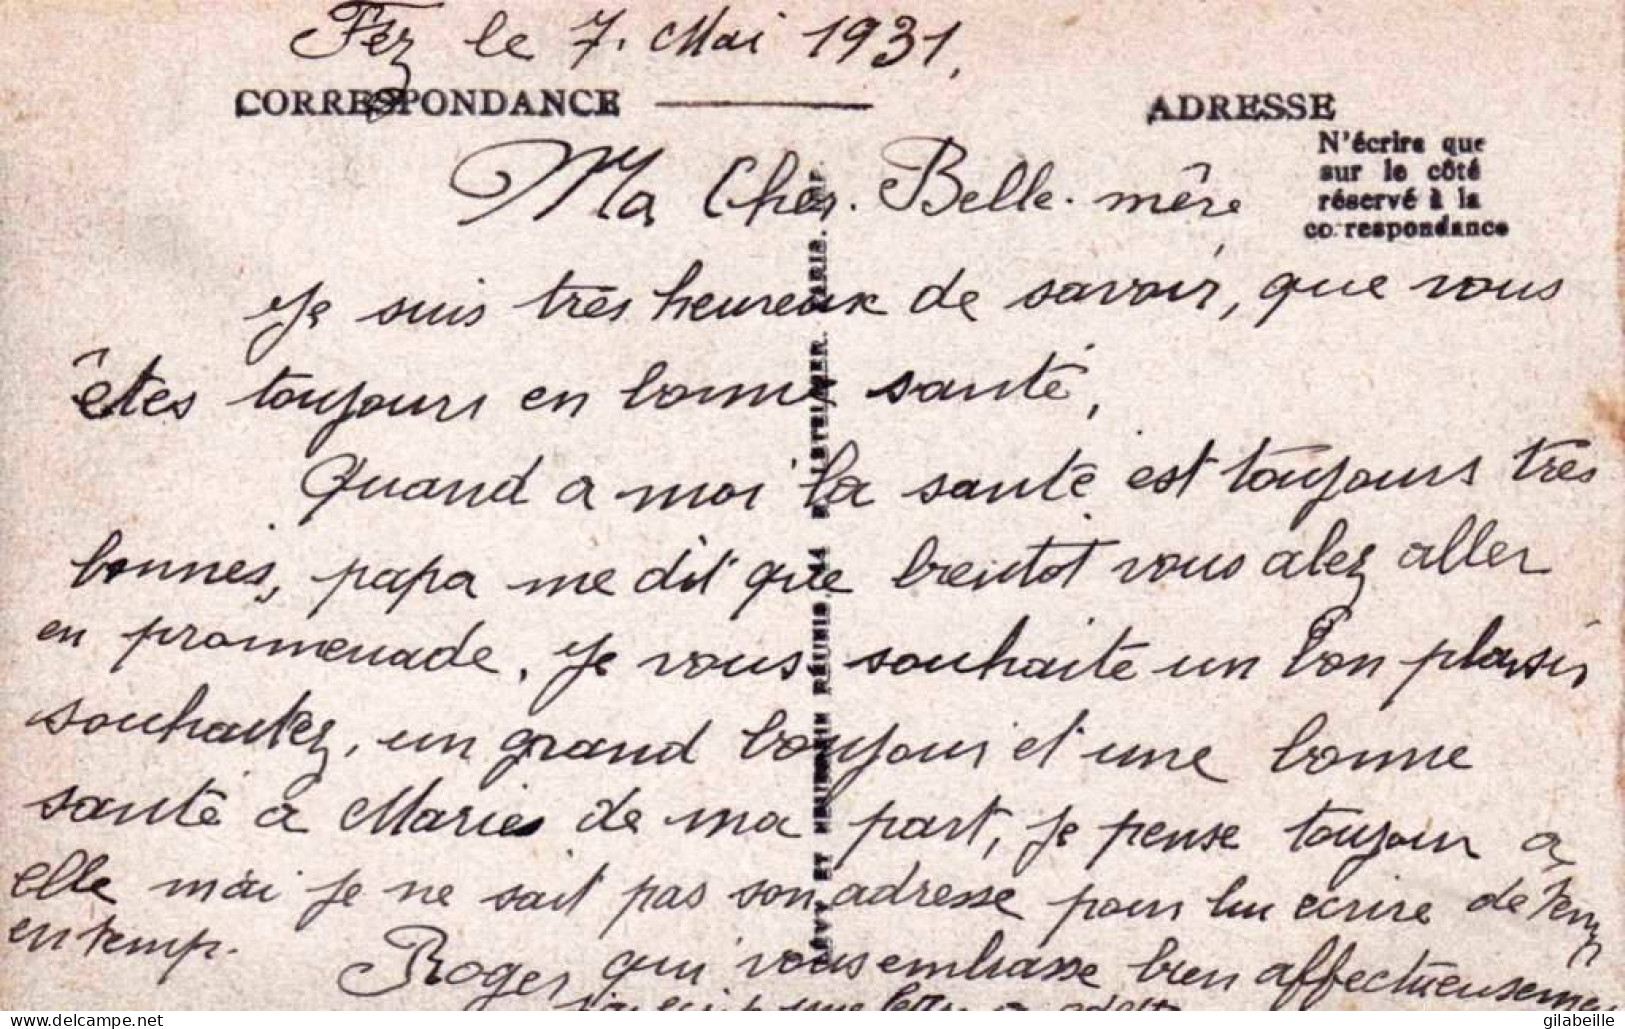 Fez le 7. Mai 1931.
CORRESPONDANCE
ADRESSE
N'écrire que
sur le côté
réservé à la
correspondance
Ma Cher. Belle. mère
Je suis très heureux de savoir, que vous
êtes toujours en bonne santé,
Quand a moi la santé est toujours très
bonnes, papa me dit que bientot vous alez aller
en promenade. Je vous souhaite un bon plaisir
souhaitez, un grand boujour et une bonne
santé a Marie de ma part, je pense toujour a
elle mai je ne sait pas son adresse pour lui ecrire de temp
en temp.
Roger qui vous embrasse bien affectueuseme
LÉVY ET NEURDEIN RÉUNIS, 44 PARIS. IMP.
gilabeille